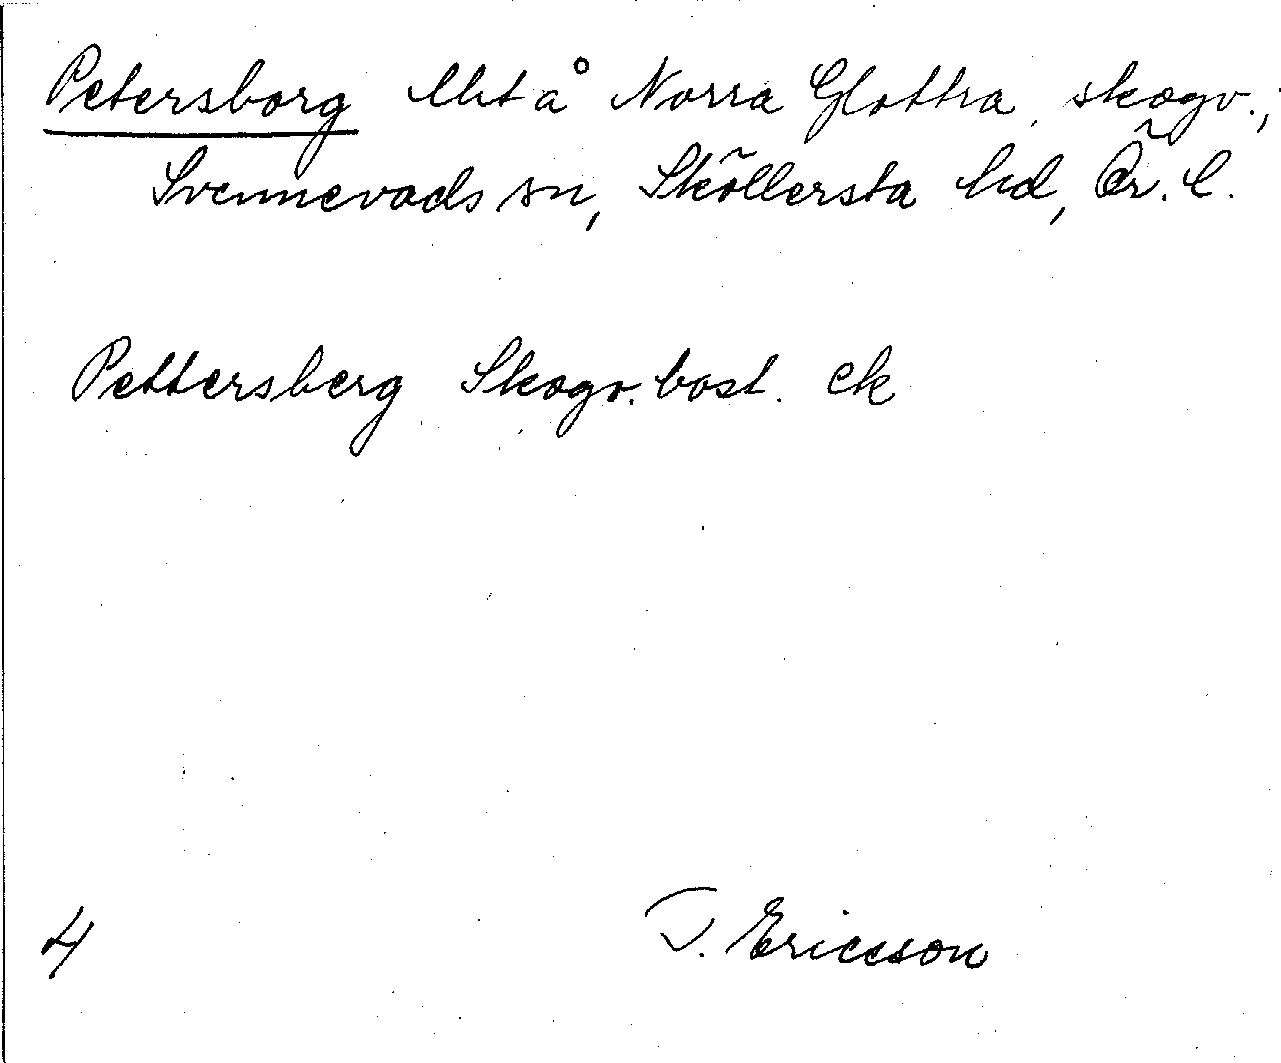 Petersborg lht å Norra Glottra, skogv.;
Svennevads sn, Sköllersta hd, Ör. l.
Pettersberg Skogv. bost. ek
4
T. Ericsson